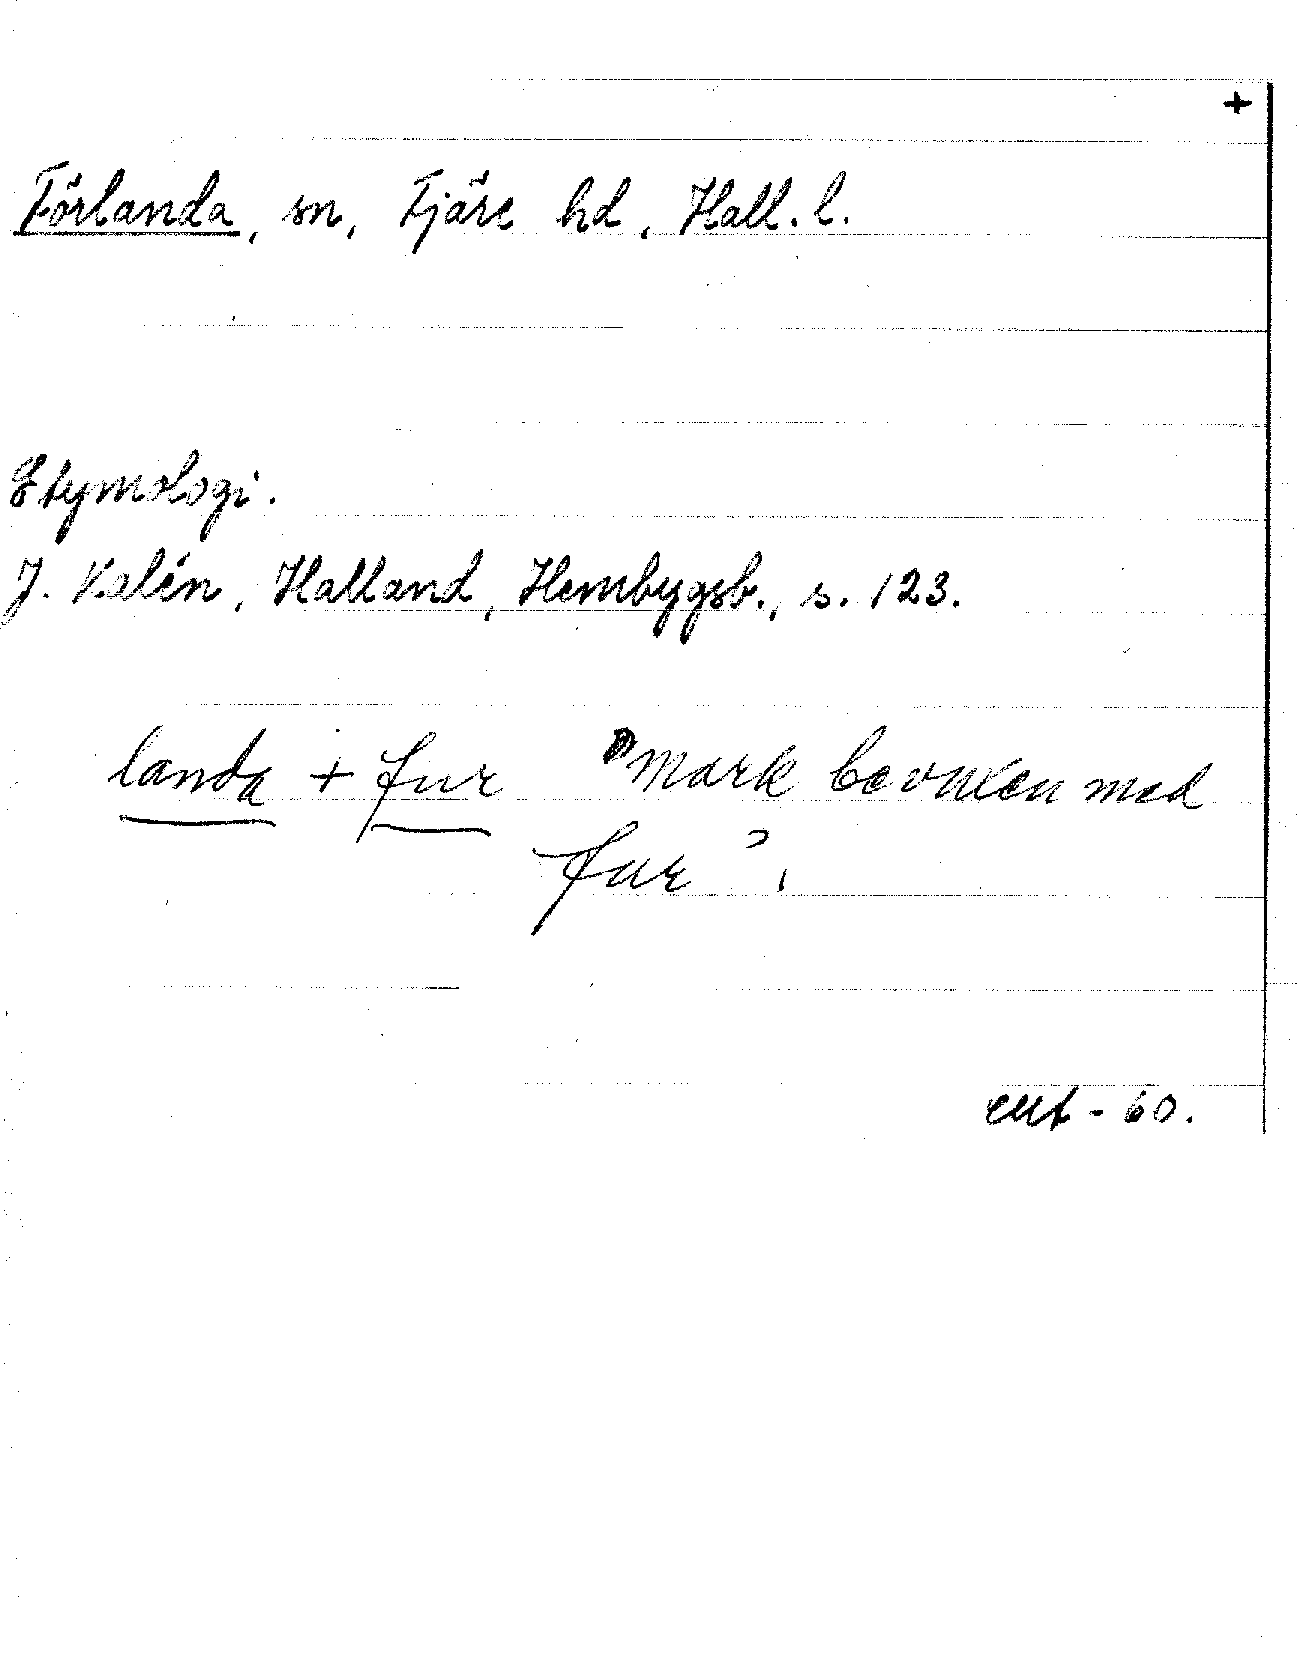 +
Förlanda, sn, Fjäre hd, Hall. l.
Etymologi.
J. Kalén, Halland, Hembygsb., s. 123.
landa + fur "mark bevuxen med
fur".
- 60.